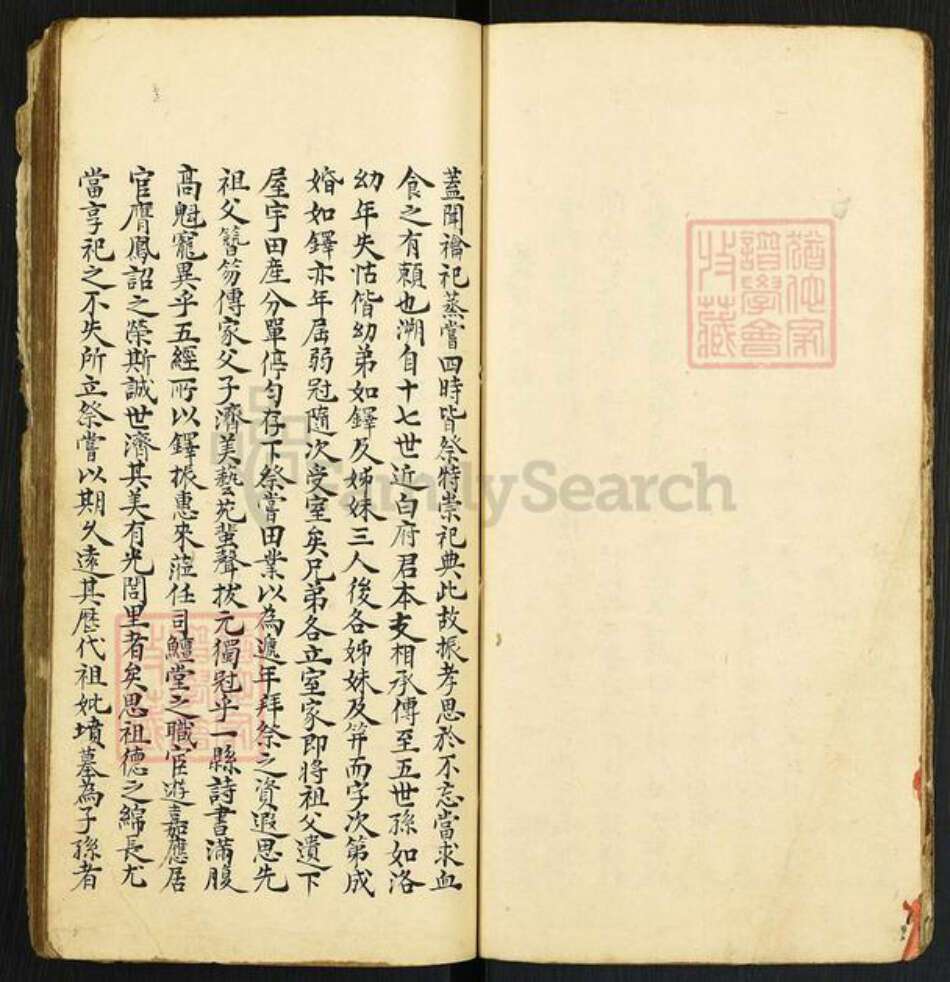 蓋聞禴祀蒸嘗四時皆祭特崇祀典此故振孝思於不忘當求血
食之有賴也溯自十七世近白府君本支相承傳至五世孫如洛
幼年失怙偕幼弟如鐸及姊妹三人後各姊妹及笄而字次第成
婚如鐸亦年屆弱冠隨次受室矣兄弟各立室家即將祖父遺下
屋宇田產分單停勻存下祭嘗田業以為遞年拜祭之資遐思先
祖父簪笏傳家父子濟美藝苑蜚聲拔元獨冠乎一縣詩書滿腹
高魁寵異乎五經所以鐸振惠來蒞任司鱣堂之職宦遊嘉應居
官膺鳳詔之榮斯誠世濟其美有光閭里者矣思祖德之綿長尤
當享祀之不失所立祭嘗以期久遠其歷代祖妣墳墓為子孫者
猶他家譜學會收藏
FamilySearch